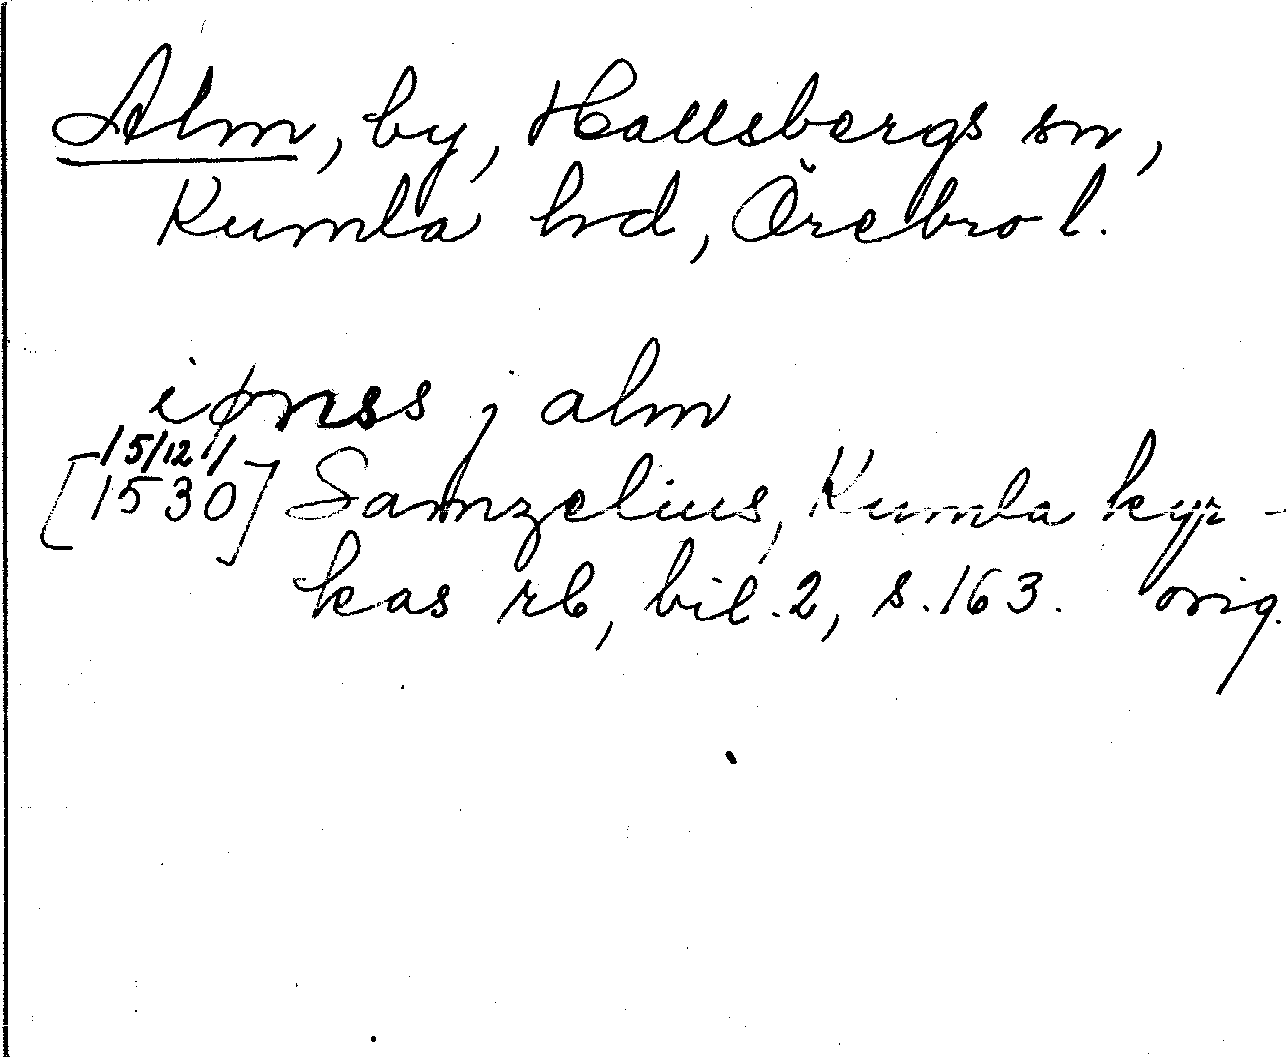 Alm, by, Hallsbergs sn,
Kumla hd, Örebro l.
iønss j alm
[15/12
1530] Samzelius, Kumla kyr-
kas rb, bil. 2, s. 163. orig.